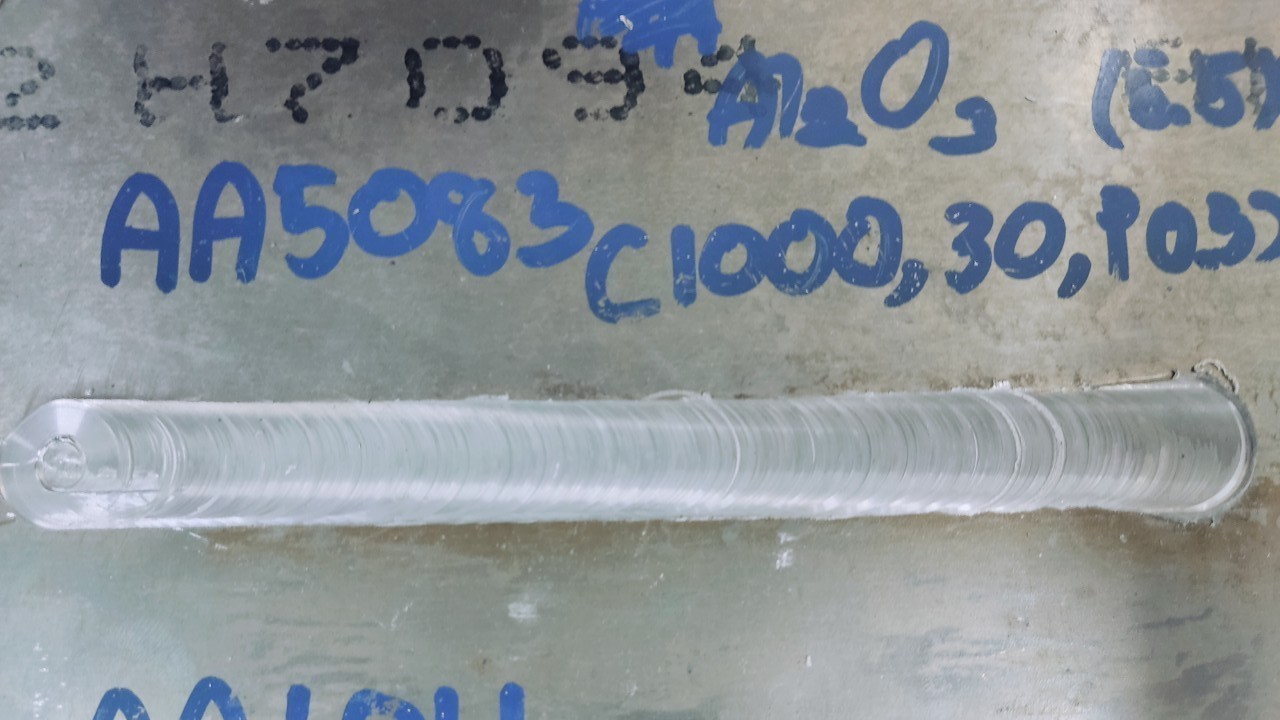 2 H709
Al2O3 (E5)
AA5083 C1000,30,P03